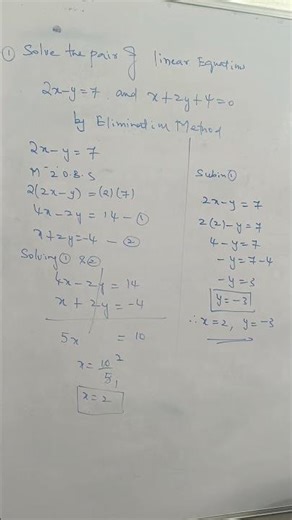 ① Solve the pair of linear Equation
2x-y=7 and x+2y+4=0
by Elimination Method
2x-y=7
M "2" O.B.S
2(2x-y)=(2)(7)
4x-2y=14 - ①
x+2y=-4 - ②
Solving ① & ②
4x-2y=14
x+2y=-4
5x = 10
x=10/5 2 1
x=2
Sub in ①
2x-y=7
2(2)-y=7
4-y=7
-y=7-4
-y=3
y=-3
∴ x=2, y=-3